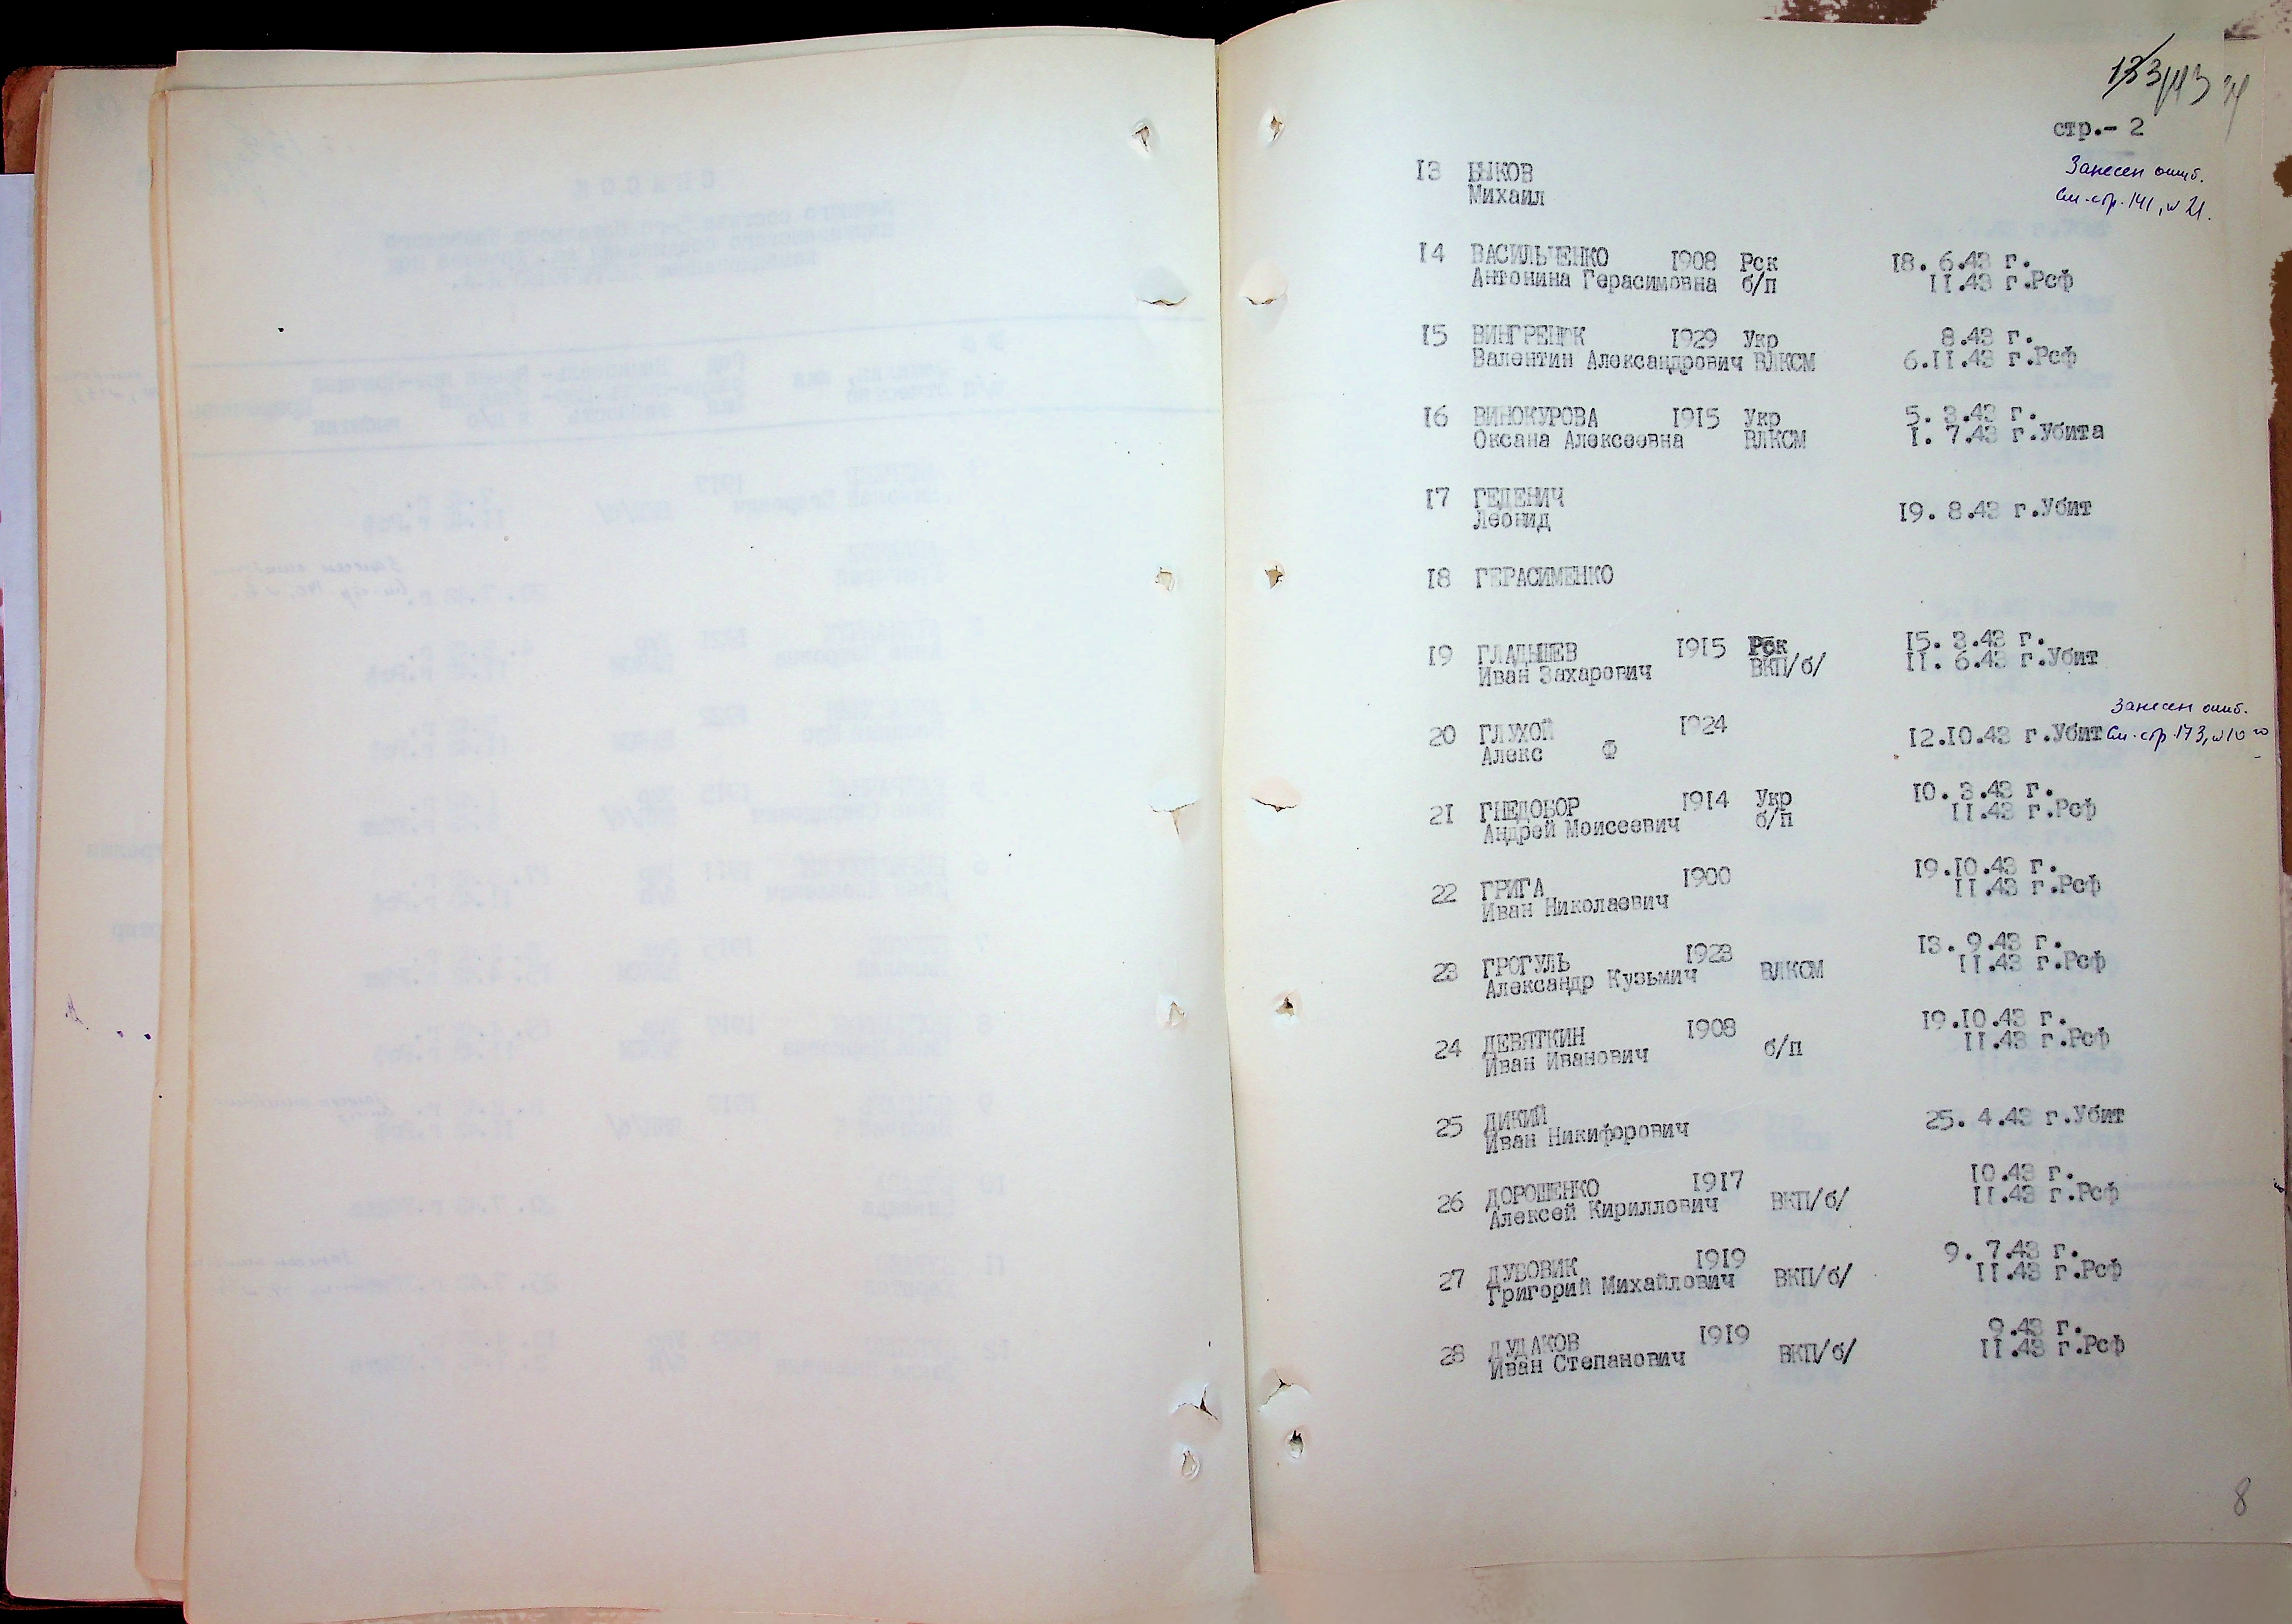 стр.- 2
Занесен ошиб.
См. стр. 141, №21.
13 БЫКОВ
Михаил
14 ВАСИЛЬЧЕНКО 1908 Рск 18. 6.43 г.
Антонина Герасимовна б/п 11.43 г.Рсф
15 ВИНГРЕНЮК 1929 Укр 8.43 г.
Валентин Александрович ВЛКСМ 6.11.43 г.Рсф
16 ВИНОКУРОВА 1915 Укр 5. 3.43 г.
Оксана Алексеевна ВЛКСМ 1. 7.43 г.Убита
17 ГЕДЕНИЧ
Леонид 19. 8.43 г.Убит
18 ГЕРАСИМЕНКО
19 ГЛАДЫШЕВ 1915 Рск 15. 3.43 г.
Иван Захарович ВКП/б/ 11. 6.43 г.Убит
Занесен ошиб.
20 ГЛУХОЙ 1924 12.10.43 г.Убит См. стр. 173, №10
Алекс Ф
21 ГНЕДОБОР 1914 Укр 10. 3.43 г.
Андрей Моисеевич б/п 11.43 г.Рсф
22 ГРИГА 1900 19.10.43 г.
Иван Николаевич 11.43 г.Рсф
23 ГРОГУЛЬ 1923 13. 9.43 г.
Александр Кузьмич ВЛКСМ 11.43 г.Рсф
24 ДЕВЯТКИН 1908 19.10.43 г.
Иван Иванович б/п 11.43 г.Рсф
25 ДИКИЙ 25. 4.43 г.Убит
Иван Никифорович
26 ДОРОШЕНКО 1917 10.43 г.
Алексей Кириллович ВКП/б/ 11.43 г.Рсф
27 ДУБОВИК 1919 9. 7.43 г.
Григорий Михайлович ВКП/б/ 11.43 г.Рсф
28 ДУДАКОВ 1919 9.43 г.
Иван Степанович ВКП/б/ 11.43 г.Рсф
8